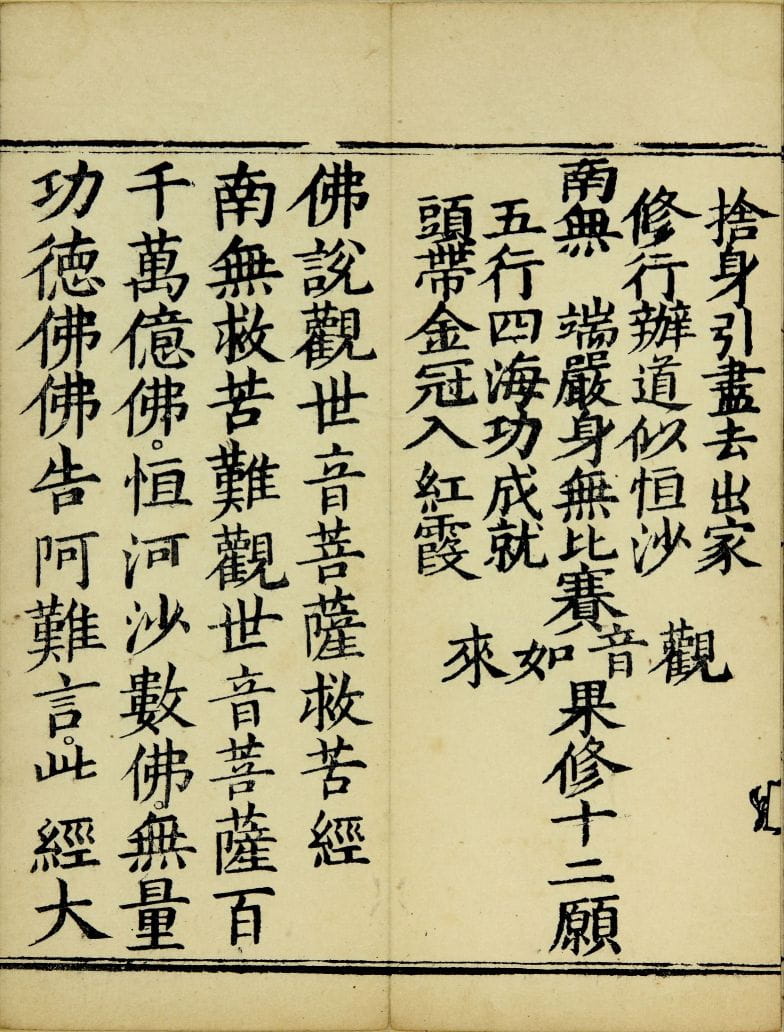 捨身引盡去出家
修行辦道似恒沙
南無 端嚴身無比賽 果修十二願
五行四海功成就
頭帶金冠入紅霞
觀音如來
佛說觀世音菩薩救苦經
南無救苦難觀世音菩薩百
千萬億佛。恒河沙數佛。無量
功德佛佛告阿難言。此經大